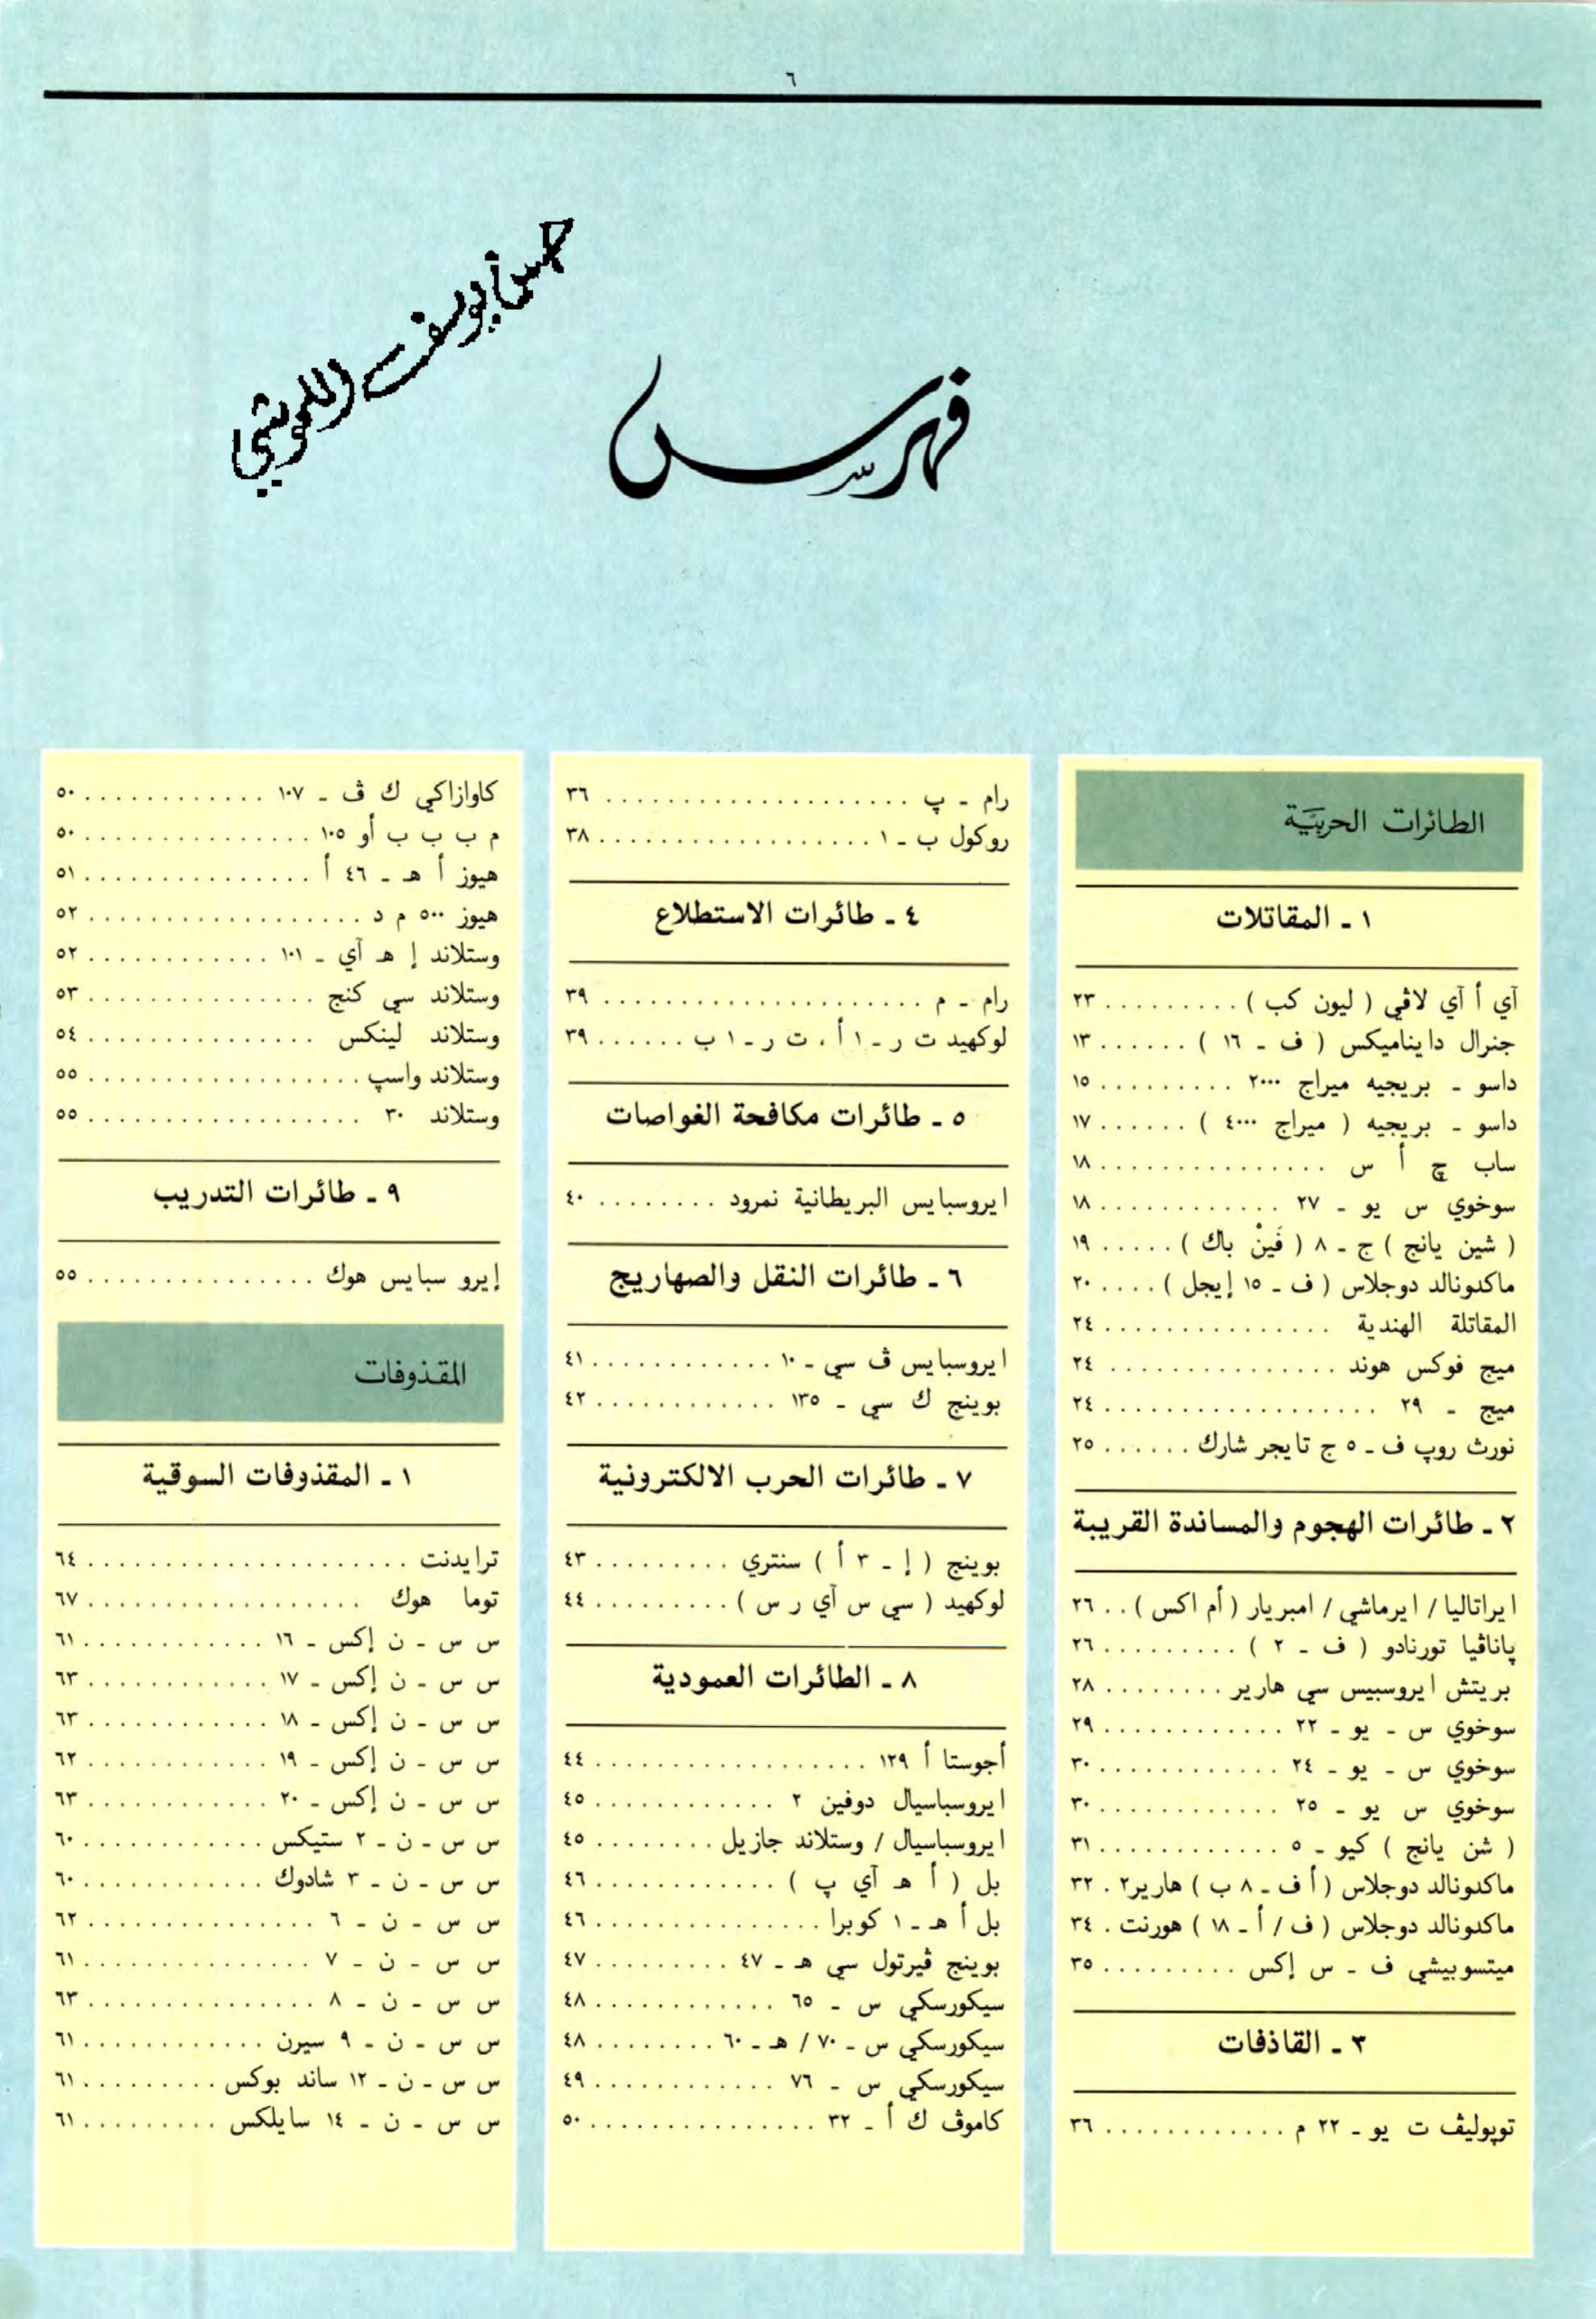 ٦
حسن يوسف اللموشي
فهرس
الطائرات الحربيّة
١ ـ المقاتلات
آي أ آي لاڤي ( ليون كب ) . . . . . . . . . ٢٣
جنرال دايناميكس ( ف ـ ١٦ ) . . . . . . ١٣
داسو ـ بريجيه ميراج ٢٠٠٠ . . . . . . . . . ١٥
داسو ـ بريجيه ( ميراج ٤٠٠٠ ) . . . . . . ١٧
ساب چ أ س . . . . . . . . . . . . . . . ١٨
سوخوي س يو ـ ٢٧ . . . . . . . . . . . . ١٨
( شين يانج ) ج ـ ٨ ( فَينْ باك ) . . . . . ١٩
ماكدونالد دوجلاس ( ف ـ ١٥ إيجل ) . . . . ٢٠
المقاتلة الهندية . . . . . . . . . . . . . . . ٢٤
ميج فوكس هوند . . . . . . . . . . . . . . . ٢٤
ميج ـ ٢٩ . . . . . . . . . . . . . . . . . . ٢٤
نورث روپ ف ـ ٥ ج تايجر شارك . . . . . . ٢٥
٢ ـ طائرات الهجوم والمساندة القريبة
ايراتاليا / ايرماشي / امبريار ( أم اكس ) . . ٢٦
پاناڤيا تورنادو ( ف ـ ٢ ) . . . . . . . . . ٢٦
بريتش ايروسبيس سي هارير . . . . . . . . ٢٨
سوخوي س ـ يو ـ ٢٢ . . . . . . . . . . . . ٢٩
سوخوي س ـ يو ـ ٢٤ . . . . . . . . . . . . ٣٠
سوخوي س يو ـ ٢٥ . . . . . . . . . . . . ٣٠
( شن يانج ) كيو ـ ٥ . . . . . . . . . . . . ٣١
ماكدونالد دوجلاس ( أ ف ـ ٨ ب ) هارير٢ . ٣٢
ماكدونالد دوجلاس ( ف / أ ـ ١٨ ) هورنت . ٣٤
ميتسوبيشي ف ـ س إكس . . . . . . . . . ٣٥
٣ ـ القاذفات
توپوليڤ ت يو ـ ٢٢ م . . . . . . . . . . . . ٣٦
رام ـ پ . . . . . . . . . . . . . . . . . . . . ٣٦
روكول ب ـ ١ . . . . . . . . . . . . . . . . . . ٣٨
٤ ـ طائرات الاستطلاع
رام ـ م . . . . . . . . . . . . . . . . . . . . . ٣٩
لوكهيد ت ر ـ ١ أ ، ت ر ـ ١ ب . . . . . . ٣٩
٥ ـ طائرات مكافحة الغواصات
ايروسبايس البريطانية نمرود . . . . . . . . ٤٠
٦ ـ طائرات النقل والصهاريج
ايروسبايس ڤ سي ـ ١٠ . . . . . . . . . . . . ٤١
بوينج ك سي ـ ١٣٥ . . . . . . . . . . . . ٤٢
٧ ـ طائرات الحرب الالكترونية
بوينج ( إ ـ ٣ أ ) سنتري . . . . . . . . . ٤٣
لوكهيد ( سي س آي ر س ) . . . . . . . . . ٤٤
٨ ـ الطائرات العمودية
أجوستا أ ١٢٩ . . . . . . . . . . . . . . . . . . ٤٤
ايروسباسيال دوفين ٢ . . . . . . . . . . . . ٤٥
ايروسباسيال / وستلاند جازيل . . . . . . . . ٤٥
بل ( أ هـ آي پ ) . . . . . . . . . . . . ٤٦
بل أ هـ ـ ١ كوبرا . . . . . . . . . . . . . . . ٤٦
بوينج ڤيرتول سي هـ ـ ٤٧ . . . . . . . . . ٤٧
سيكورسكي س ـ ٦٥ . . . . . . . . . . . . ٤٨
سيكورسكي س ـ ٧٠ / هـ ـ ٦٠ . . . . . . . . ٤٨
سيكورسكي س ـ ٧٦ . . . . . . . . . . . . ٤٩
كاموڤ ك أ ـ ٣٢ . . . . . . . . . . . . . . . ٥٠
كاوازاكي ك ڤ ـ ١٠٧ . . . . . . . . . . . . ٥٠
م ب ب ب أو ١٠٥ . . . . . . . . . . . . . . . ٥٠
هيوز أ هـ ـ ٤٦ أ . . . . . . . . . . . . . . . ٥١
هيوز ٥٠٠ م د . . . . . . . . . . . . . . . . . . ٥٢
وستلاند إ هـ آي ـ ١٠١ . . . . . . . . . . . . ٥٢
وستلاند سي كنج . . . . . . . . . . . . . . . ٥٣
وستلاند لينكس . . . . . . . . . . . . . . . ٥٤
وستلاند واسپ . . . . . . . . . . . . . . . . . . ٥٥
وستلاند ٣٠ . . . . . . . . . . . . . . . . . . ٥٥
٩ ـ طائرات التدريب
إيرو سبايس هوك . . . . . . . . . . . . . . . ٥٥
المقذوفات
١ ـ المقذوفات السوقية
ترايدنت . . . . . . . . . . . . . . . . . . . . . ٦٤
توما هوك . . . . . . . . . . . . . . . . . . ٦٧
س س ـ ن إكس ـ ١٦ . . . . . . . . . . . . ٦١
س س ـ ن إكس ـ ١٧ . . . . . . . . . . . . ٦٣
س س ـ ن إكس ـ ١٨ . . . . . . . . . . . . ٦٣
س س ـ ن إكس ـ ١٩ . . . . . . . . . . . . ٦٢
س س ـ ن إكس ـ ٢٠ . . . . . . . . . . . . ٦٣
س س ـ ن ـ ٢ ستيكس . . . . . . . . . . . . ٦٠
س س ـ ن ـ ٣ شادوك . . . . . . . . . . . . ٦٠
س س ـ ن ـ ٦ . . . . . . . . . . . . . . . ٦٢
س س ـ ن ـ ٧ . . . . . . . . . . . . . . . ٦١
س س ـ ن ـ ٨ . . . . . . . . . . . . . . . ٦٣
س س ـ ن ـ ٩ سيرن . . . . . . . . . . . . ٦١
س س ـ ن ـ ١٢ ساند بوكس . . . . . . . . . ٦١
س س ـ ن ـ ١٤ سايلكس . . . . . . . . . ٦١